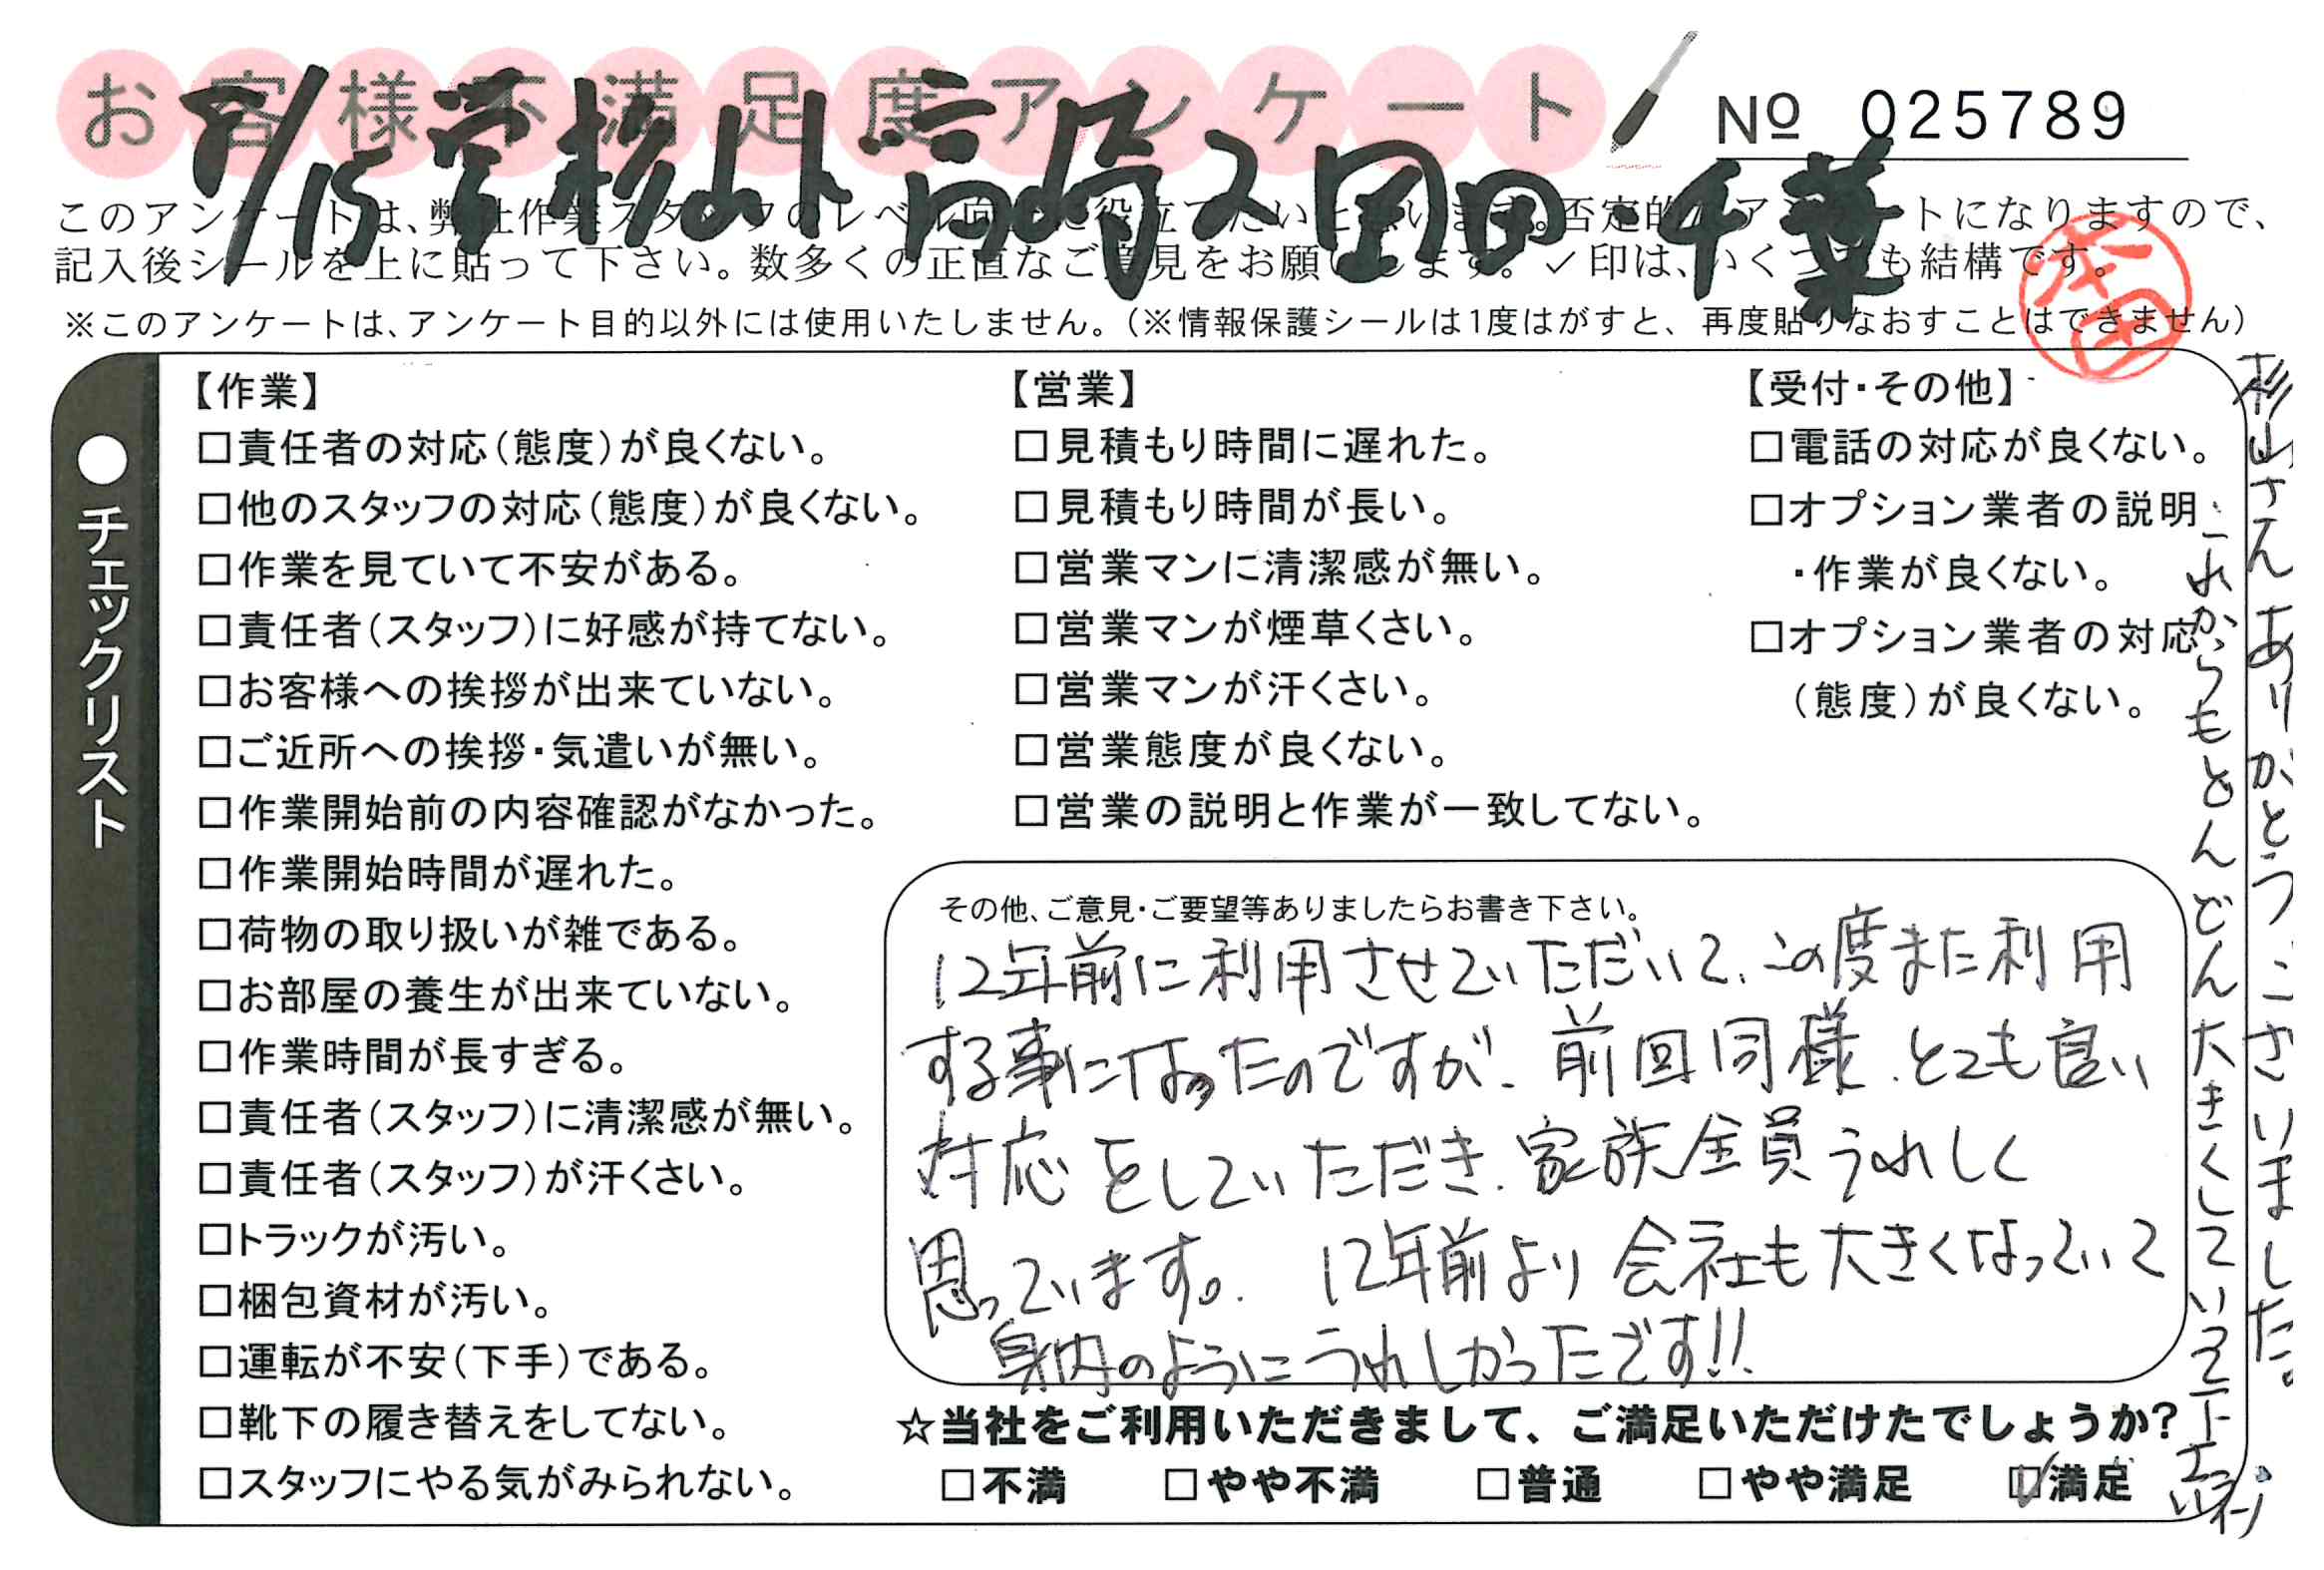 お客様不満足度アンケート
№ 025789
高崎 岡田・千葉
このアンケートは、弊社作業スタッフのレベル向上に役立てたいと思います。否定的なアンケートになりますので、
記入後シールを上に貼って下さい。数多くの正直なご意見をお願いします。✓印は、いくつでも結構です。
※このアンケートは、アンケート目的以外には使用いたしません。（※情報保護シールは1度はがすと、再度貼りなおすことはできません）
本田
●チェックリスト
【作業】
□責任者の対応（態度）が良くない。
□他のスタッフの対応（態度）が良くない。
□作業を見ていて不安がある。
□責任者（スタッフ）に好感が持てない。
□お客様への挨拶が出来ていない。
□ご近所への挨拶・気遣いが無い。
□作業開始前の内容確認がなかった。
□作業開始時間が遅れた。
□荷物の取り扱いが雑である。
□お部屋の養生が出来ていない。
□作業時間が長すぎる。
□責任者（スタッフ）に清潔感が無い。
□責任者（スタッフ）が汗くさい。
□トラックが汚い。
□梱包資材が汚い。
□運転が不安（下手）である。
□靴下の履き替えをしてない。
□スタッフにやる気がみられない。
【営業】
□見積もり時間に遅れた。
□見積もり時間が長い。
□営業マンに清潔感が無い。
□営業マンが煙草くさい。
□営業マンが汗くさい。
□営業態度が良くない。
□営業の説明と作業が一致してない。
【受付・その他】
□電話の対応が良くない。
□オプション業者の説明
・作業が良くない。
□オプション業者の対応
（態度）が良くない。
その他、ご意見・ご要望等ありましたらお書き下さい。
12年前に利用させていただいて、この度また利用
する事になったのですが、前回同様、とても良い
対応をしていただき、家族全員うれしく
思っています。12年前より会社も大きくなっていて
身内のようにうれしかったです!!
杉山さんありがとうございました。
これからもどんどん大きくしていって下さい
☆当社をご利用いただきまして、ご満足いただけたでしょうか？
□不満 □やや不満 □普通 □やや満足 ☑満足